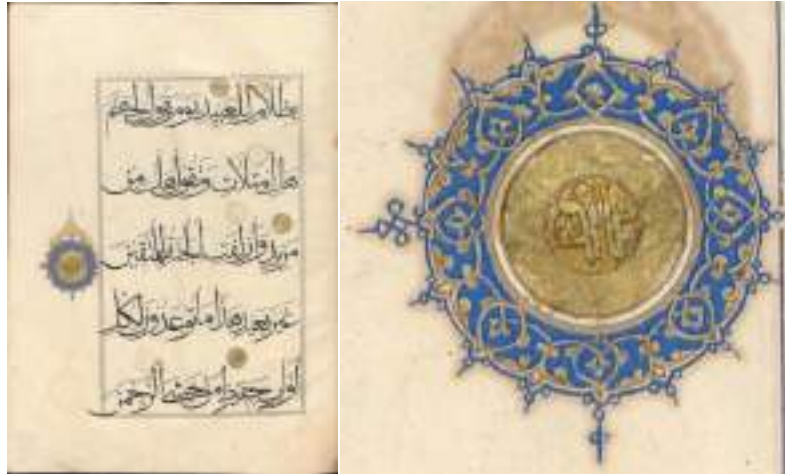 بظلام للعبيد يوم نقول لجهنم
هل امتلات وتقول هل من
مزيد وازلفت الجنة للمتقين
غير بعيد هذا ما توعدون لكل
اواب حفيظ من خشي الرحمن